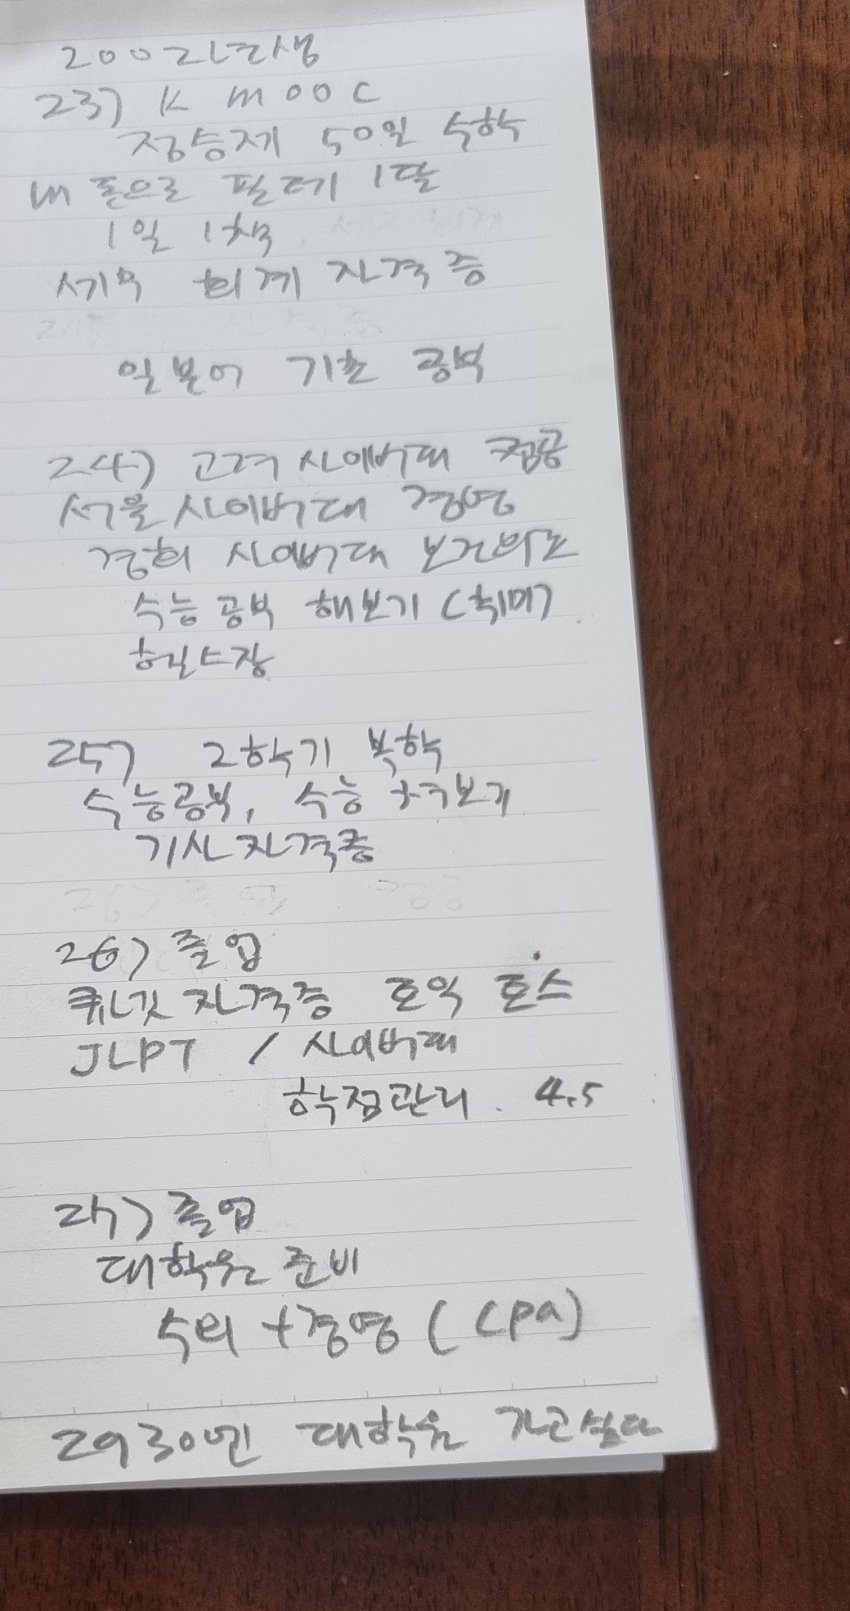 2002년생
23) K MOOC
정승제 50일 수학
내 폰으로 필터기 1달
1일 1책
세무 회계 자격증
일본어 기초 공부
24) 고려사이버대 컴공
서울사이버대 경영
경희 사이버대 보건의료
수능공부 해보기 (취미)
헬스장
25) 2학기 복학
수능공부, 수능 쳐보기
기사자격증
26) 졸업
큐넷 자격증 토익 토스
JLPT / 사이버대
학점관리. 4.5
27) 졸업
대학원 준비
수의 + 경영 (cpa)
29 30에 대학원 가고싶다